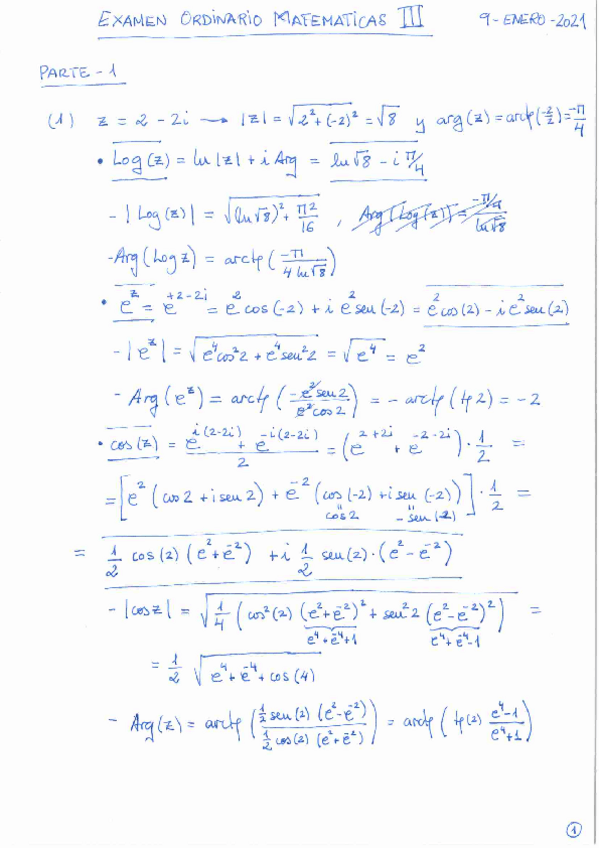 EXAMEN ORDINARIO MATEMATICAS III 9-ENERO-2021
PARTE-1
(1) z = 2 - 2i → |z| = √(2² + (-2)²) = √8 y arg(z) = arctg(-2/2) = -π/4
• Log(z) = ln|z| + i Arg = ln√8 - i π/4
- |Log(z)| = √((ln√8)² + π²/16) , Arg(Log(z)) = (-π/4)/(ln√8)
- Arg(Log z) = arctg(-π/(4 ln√8))
• e^z = e^(+2-2i) = e² cos(-2) + i e² sen(-2) = e² cos(2) - i e² sen(2)
- |e^z| = √(e⁴cos²2 + e⁴sen²2) = √(e⁴) = e²
- Arg(e^z) = arctg(-e² sen 2/(e² cos 2)) = - arctg(tg 2) = -2
• cos(z) = (e^(i(2-2i)) + e^(-i(2-2i)))/2 = (e^(2+2i) + e^(-2-2i)) · 1/2 =
= [e² (cos 2 + i sen 2) + e⁻² (cos(-2) + i sen(-2))] · 1/2 =
" "
cos 2 - sen(2)
= 1/2 cos(2) (e² + e⁻²) + i 1/2 sen(2) · (e² - e⁻²)
- |cos z| = √(1/4 (cos²(2) (e² + e⁻²)² + sen² 2 (e² - e⁻²)²)) =
e⁴ + e⁻⁴ + 1 e⁴ + e⁻⁴ - 1
= 1/2 √(e⁴ + e⁻⁴ + cos(4))
- Arg(z) = arctg(1/2 sen(2) (e² - e⁻²)/(1/2 cos(2) (e² + e⁻²))) = arctg(tg(2) (e⁴ - 1)/(e⁴ + 1))
1